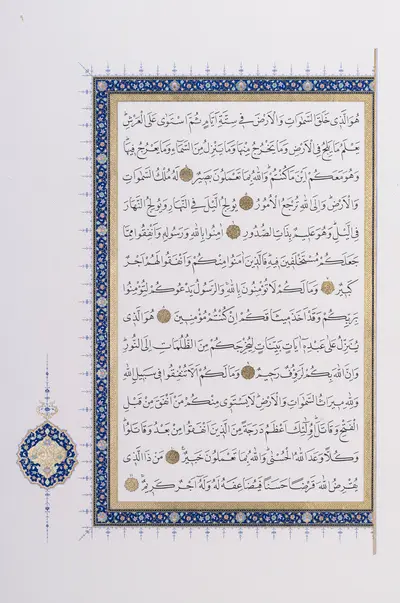 هُوَ الَّذِي خَلَقَ السَّمٰوَاتِ وَالْاَرْضَ فِي سِتَّةِ اَيَّامٍ ثُمَّ اسْتَوٰى عَلَى الْعَرْشِ
يَعْلَمُ مَا يَلِجُ فِي الْاَرْضِ وَمَا يَخْرُجُ مِنْهَا وَمَا يَنْزِلُ مِنَ السَّمَاءِ وَمَا يَعْرُجُ فِيهَا
وَهُوَ مَعَكُمْ اَيْنَ مَا كُنْتُمْ وَاللّٰهُ بِمَا تَعْمَلُونَ بَصِيرٌ لَهُ مُلْكُ السَّمٰوَاتِ
وَالْاَرْضِ وَاِلَى اللّٰهِ تُرْجَعُ الْاُمُورُ يُولِجُ الَّيْلَ فِي النَّهَارِ وَيُولِجُ النَّهَارَ
فِي الَّيْلِ وَهُوَ عَلِيمٌ بِذَاتِ الصُّدُورِ اٰمِنُوا بِاللّٰهِ وَرَسُولِهِ وَاَنْفِقُوا مِمَّا
جَعَلَكُمْ مُسْتَخْلَفِينَ فِيهِ فَالَّذِينَ اٰمَنُوا مِنْكُمْ وَاَنْفَقُوا لَهُمْ اَجْرٌ
كَبِيرٌ وَمَا لَكُمْ لَا تُؤْمِنُونَ بِاللّٰهِ وَالرَّسُولُ يَدْعُوكُمْ لِتُؤْمِنُوا
بِرَبِّكُمْ وَقَدْ اَخَذَ مِيثَاقَكُمْ اِنْ كُنْتُمْ مُؤْمِنِينَ هُوَ الَّذِي
يُنَزِّلُ عَلٰى عَبْدِهِ اٰيَاتٍ بَيِّنَاتٍ لِيُخْرِجَكُمْ مِنَ الظُّلُمَاتِ اِلَى النُّورِ
وَاِنَّ اللّٰهَ بِكُمْ لَرَؤُفٌ رَحِيمٌ وَمَا لَكُمْ اَلَّا تُنْفِقُوا فِي سَبِيلِ اللّٰهِ
وَلِلّٰهِ مِيرَاثُ السَّمٰوَاتِ وَالْاَرْضِ لَا يَسْتَوِي مِنْكُمْ مَنْ اَنْفَقَ مِنْ قَبْلِ
الْفَتْحِ وَقَاتَلَ اُولٰئِكَ اَعْظَمُ دَرَجَةً مِنَ الَّذِينَ اَنْفَقُوا مِنْ بَعْدُ وَقَاتَلُوا
وَكُلًّا وَعَدَ اللّٰهُ الْحُسْنٰى وَاللّٰهُ بِمَا تَعْمَلُونَ خَبِيرٌ مَنْ ذَا الَّذِي
يُقْرِضُ اللّٰهَ قَرْضًا حَسَنًا فَيُضَاعِفَهُ لَهُ وَلَهُ اَجْرٌ كَرِيمٌ